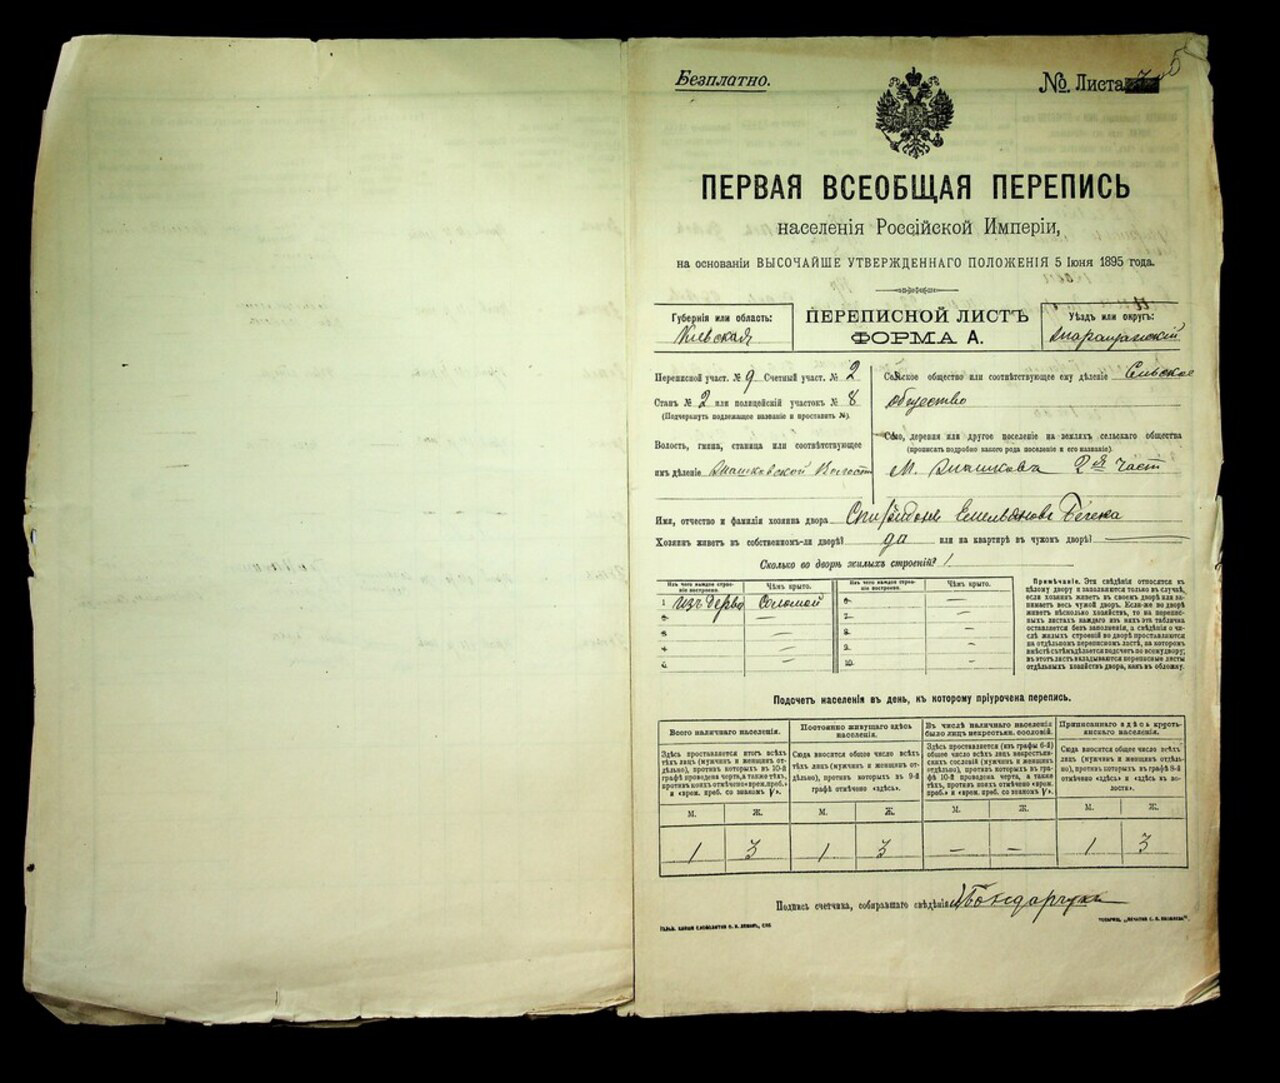 Безплатно.
№ Листа
ПЕРВАЯ ВСЕОБЩАЯ ПЕРЕПИСЬ
населенія Россійской Имперіи,
на основаніи ВЫСОЧАЙШЕ УТВЕРЖДЕННАГО ПОЛОЖЕНІЯ 5 Іюня 1895 года.
Губернія или область:
Кіевская
ПЕРЕПИСНОЙ ЛИСТЪ
ФОРМА А.
Уѣздъ или округъ:
Переписной участ. № 9 Счетный участ. № 2
Станъ № 2 или полицейскій участокъ № 8
(Подчеркнуть подлежащее названіе и проставить №).
Волость, гмина, станица или соотвѣтствующее
имъ дѣленіе Волости
Сельское общество или соотвѣтствующее ему дѣленіе Сельское
общество
Село, деревня или другое поселеніе на земляхъ сельскаго общества
(прописать подробно какого рода поселеніе и его названіе).
М. 2я Част
Имя, отчество и фамилія хозяина двора Спиридонъ Емельяновъ
Хозяинъ живетъ въ собственномъ-ли дворѣ? да или на квартирѣ въ чужомъ дворѣ? —
Сколько во дворѣ жилыхъ строеній? 1
Изъ чего каждое строеніе построено. Чѣмъ крыто. Изъ чего каждое строеніе построено. Чѣмъ крыто.
1 изъ дерва Соломой 6. —
2. — 7. —
3 — 8. —
4 — 9. —
5. — 10. —
Примѣчаніе. Эти свѣдѣнія относятся къ
цѣлому двору и заполняются только въ случаѣ,
если хозяинъ живетъ въ своемъ дворѣ или занимаетъ
весь чужой дворъ. Если-же во дворѣ
живетъ нѣсколько хозяйствъ, то на переписныхъ
листахъ каждаго изъ нихъ эта табличка
оставляется безъ заполненія, а свѣдѣнія о числѣ
жилыхъ строеній во дворѣ проставляются
на отдѣльномъ переписномъ листѣ, на которомъ
вмѣстѣ съ тѣмъ дѣлается подсчетъ по всему двору;
въ этотъ листъ вкладываются переписные листы
отдѣльныхъ хозяйствъ двора, какъ въ обложку.
Подсчетъ населенія въ день, къ которому пріурочена перепись.
Всего наличнаго населенія.
Здѣсь проставляется итогъ всѣхъ
тѣхъ лицъ (мужчинъ и женщинъ отдѣльно),
противъ которыхъ въ 10-й
графѣ проведена черта, а также тѣхъ,
противъ коихъ отмѣчено «врем. преб.»
и «врем. преб. со знакомъ V».
Постоянно живущаго здѣсь населенія.
Сюда вносится общее число всѣхъ
тѣхъ лицъ (мужчинъ и женщинъ отдѣльно),
противъ которыхъ въ 9-й
графѣ отмѣчено «здѣсь».
Въ числѣ наличнаго населенія
было лицъ некрестьян. сословій.
Здѣсь проставляется (изъ графы 6-й)
общее число всѣхъ лицъ некрестьянскихъ
сословій (мужчинъ и женщинъ
отдѣльно), противъ которыхъ въ графѣ
10-й проведена черта, а также
тѣхъ, противъ коихъ отмѣчено «врем.
преб.» и «врем. преб. со знакомъ V».
Приписаннаго здѣсь крестьянскаго населенія.
Сюда вносится общее число всѣхъ
лицъ (мужчинъ и женщинъ отдѣльно),
противъ которыхъ въ графѣ 8-й
отмѣчено «здѣсь» и «здѣсь въ волости».
М. Ж. М. Ж. М. Ж. М. Ж.
1 3 1 3 — — 1 3
Подпись счетчика, собиравшаго свѣдѣнія Бондарчукъ